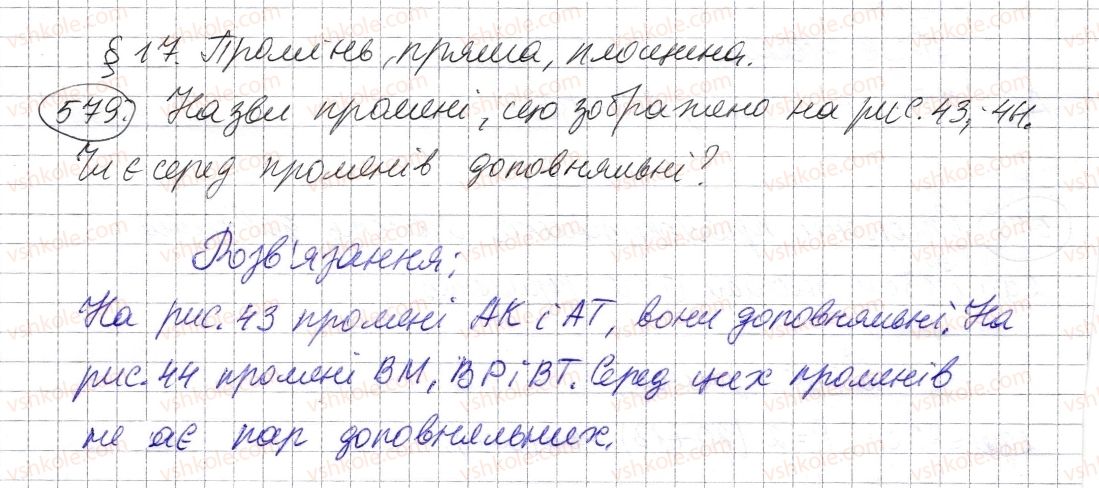 § 17. Промінь, пряма, площина.
579. Назви промені, що зображено на рис. 43, 44.
Чи є серед променів доповняльні?
Розв'язання:
На рис. 43 промені АК і АТ, вони доповняльні. На
рис. 44 промені ВМ, ВР і ВТ. Серед цих променів
не ає пар доповняльних.